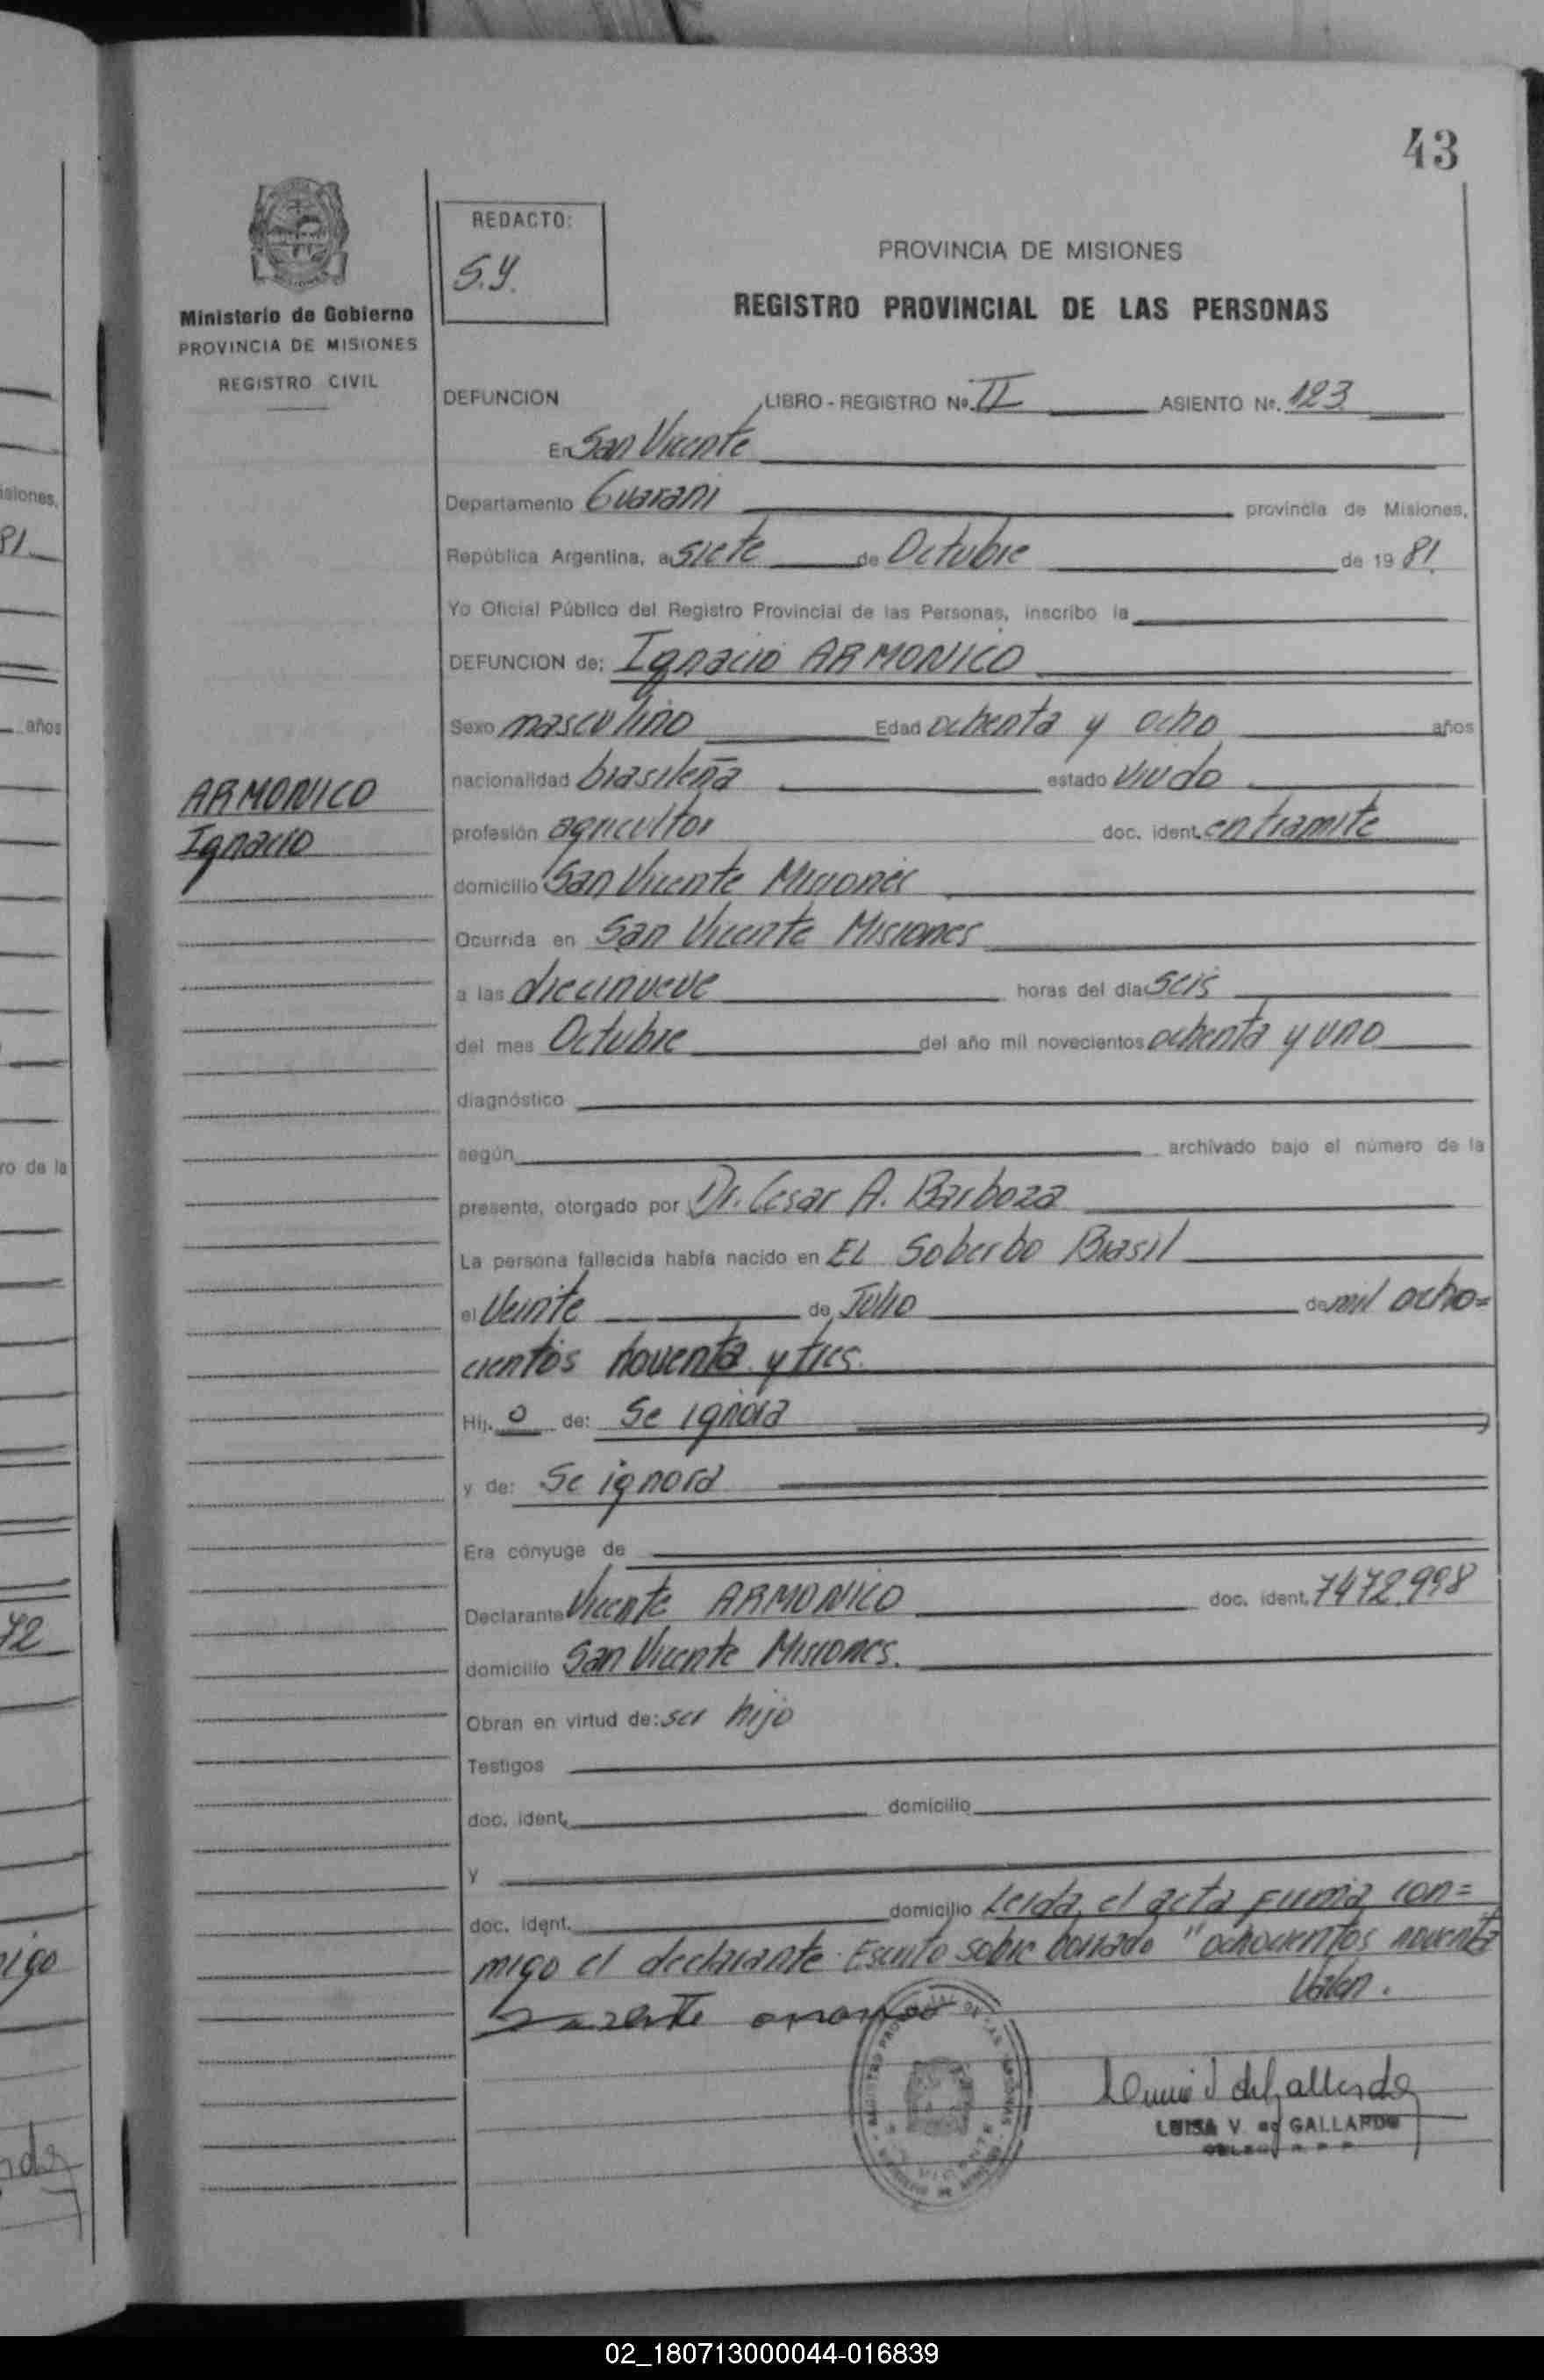 43
REDACTO:
S.Y.
Ministerio de Gobierno
PROVINCIA DE MISIONES
REGISTRO CIVIL
PROVINCIA DE MISIONES
REGISTRO PROVINCIAL DE LAS PERSONAS
DEFUNCION LIBRO - REGISTRO No. II ASIENTO No. 123
En San Vicente
Departamento Guarani provincia de Misiones,
República Argentina, a siete de Octubre de 1981.
Yo Oficial Público del Registro Provincial de las Personas, inscribo la
DEFUNCION de: Ignacio ARMONICO
Sexo masculino Edad ochenta y ocho años
nacionalidad brasileña estado viudo
ARMONICO
Ignacio
profesión agricultor doc. ident. en tramite
domicilio San Vicente Misiones
Ocurrida en San Vicente Misiones
a las diecinueve horas del día seis
del mes Octubre del año mil novecientos ochenta y uno
diagnóstico
según archivado bajo el número de la
presente, otorgado por Dr. Cesar A. Barboza
La persona fallecida había nacido en EL Soberbo Brasil
el Veinte de Julio de mil ocho=
cientos noventa y tres.
Hij. o de: Se ignora
y de: Se ignora
Era cónyuge de
Declarante Vicente ARMONICO doc. ident. 7472.998
domicilio San Vicente Misiones.
Obran en virtud de: ser hijo
Testigos
doc. ident. domicilio
y
doc. ident. domicilio Leida, el acta firma con=
migo el declarante. Escrito sobre borrado "ochocientos noventa
Valen.
LUISA V. de GALLARDO
isiones,
81
años
ro de la
72
migo
02_180713000044-016839